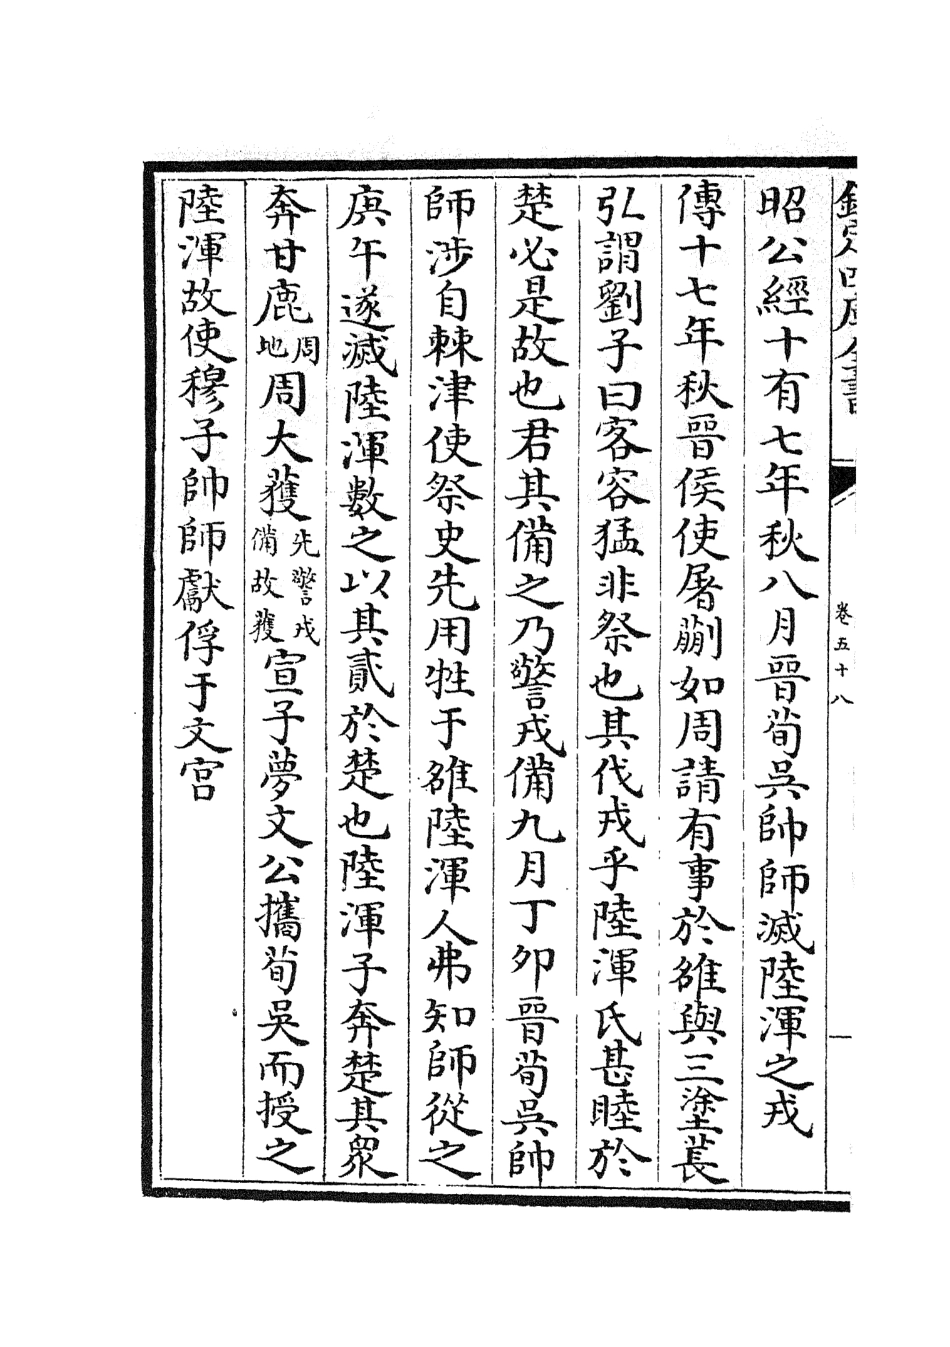 欽定四庫全書
卷五十八
一
昭公經十有七年秋八月晉荀吳帥師滅陸渾之戎
傳十七年秋晉侯使屠蒯如周請有事於雒與三塗萇
弘謂劉子曰客容猛非祭也其伐戎乎陸渾氏甚睦於
楚必是故也君其備之乃警戎備九月丁卯晉荀吳帥
師涉自棘津使祭史先用牲于雒陸渾人弗知師從之
庚午遂滅陸渾數之以其貳於楚也陸渾子奔楚其衆
奔甘鹿周地周大獲先警戎備故獲宣子夢文公攜荀吳而授之
陸渾故使穆子帥師獻俘于文宮